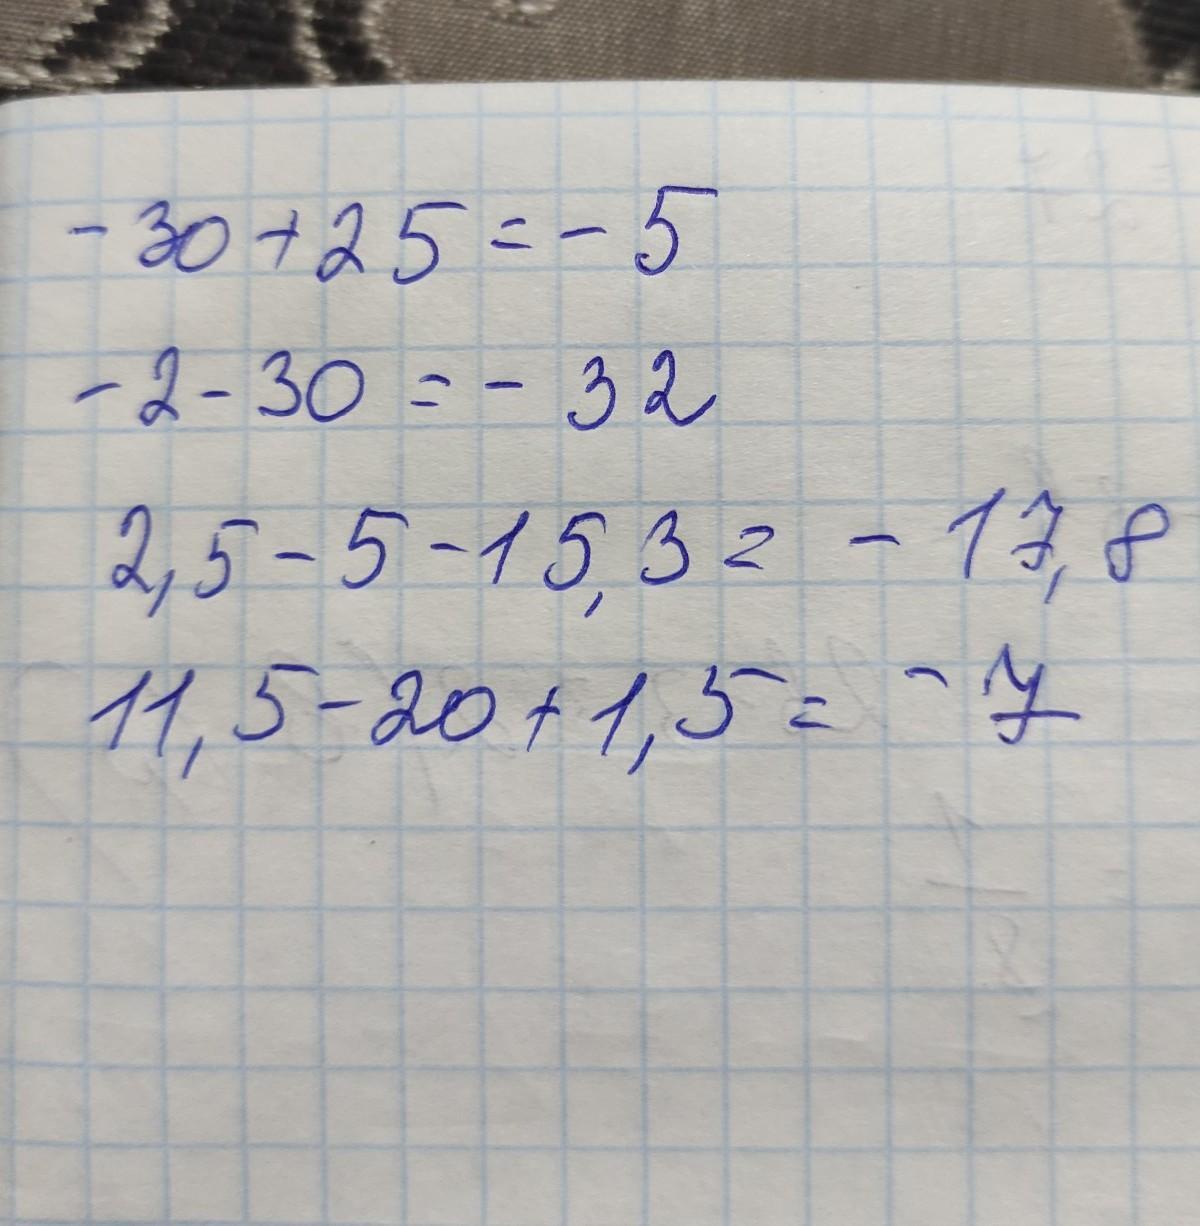 -30+25=-5
-2-30=-32
2,5-5-15,3=-17,8
11,5-20+1,5=-7